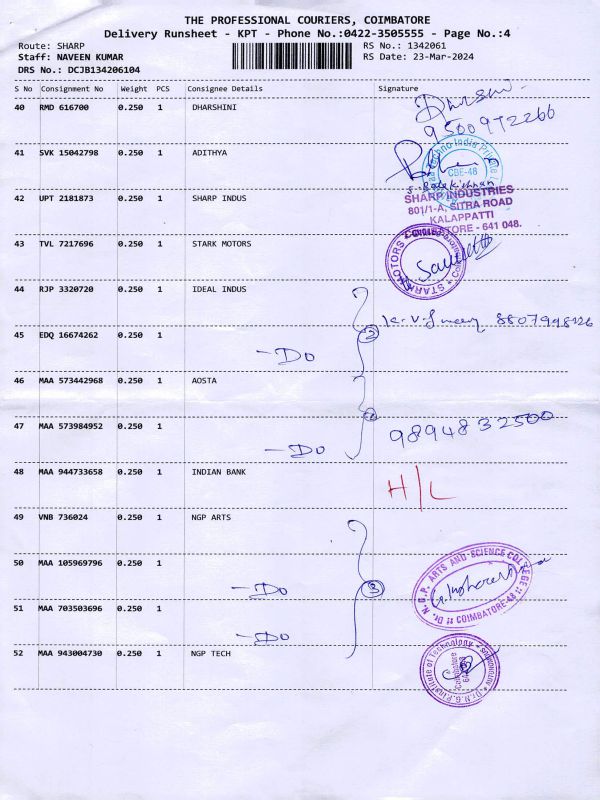 THE PROFESSIONAL COURIERS, COIMBATORE
Delivery Runsheet - KPT - Phone No.:0422-3505555 - Page No.:4
Route: SHARP
RS No.: 1342061
Staff: NAVEEN KUMAR
RS Date: 23-Mar-2024
DRS No.: DCJB134206104
S No Consignment No Weight PCS Consignee Details Signature
40 RMD 616700 0.250 1 DHARSHINI
9500972266
41 SVK 15042798 0.250 1 ADITHYA
CBE-48
42 UPT 2181873 0.250 1 SHARP INDUS
SHARP INDUSTRIES
801/1-A, SITRA ROAD
KALAPPATTI
COIMBATORE - 641 048.
43 TVL 7217696 0.250 1 STARK MOTORS
STARK MOTORS
44 RJP 3320720 0.250 1 IDEAL INDUS
2
45 EDQ 16674262 0.250 1
- Do
46 MAA 573442968 0.250 1 AOSTA
47 MAA 573984952 0.250 1
- Do
9894832500
48 MAA 944733658 0.250 1 INDIAN BANK
H/L
49 VNB 736024 0.250 1 NGP ARTS
50 MAA 105969796 0.250 1
- Do
3
Dr. N.G.P. ARTS AND SCIENCE COLLEGE
COIMBATORE-48
51 MAA 703503696 0.250 1
- Do
52 MAA 943004730 0.250 1 NGP TECH
Dr.N.G.P.Institute of Technology
Coimbatore